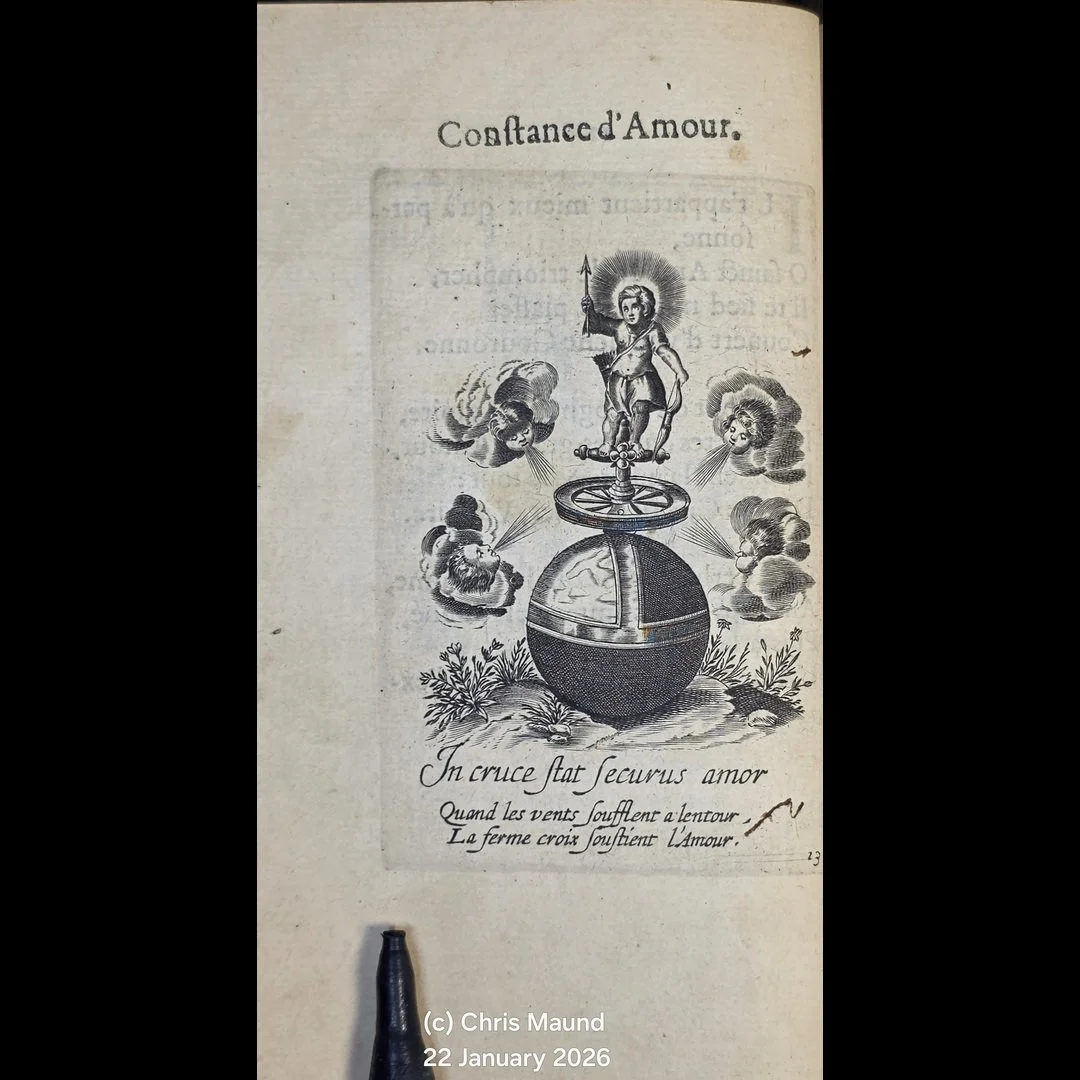 Conſtance d'Amour.
In cruce ſtat ſecurus amor
Quand les vents ſoufflent a lentour,
La ferme croix ſouſtient l'Amour.
13
(c) Chris Maund
22 January 2026